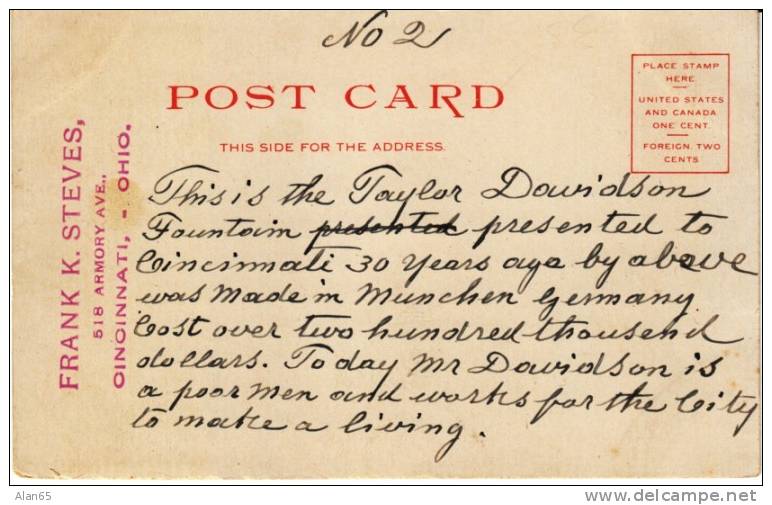 No 2
POST CARD
THIS SIDE FOR THE ADDRESS.
PLACE STAMP
HERE
UNITED STATES
AND CANADA
ONE CENT.
FOREIGN, TWO
CENTS
FRANK K. STEVES,
518 ARMORY AVE.,
CINCINNATI, - OHIO.
This is the Taylor Dawidson
Fountain presented presented to
Cincinnati 30 years ago by above
was Made in Munchen Germany
Cost over two hundred thousend
dollars. Today Mr Dawidson is
a poor Men and works for the City
to make a living.
Alan65
delcampe.net